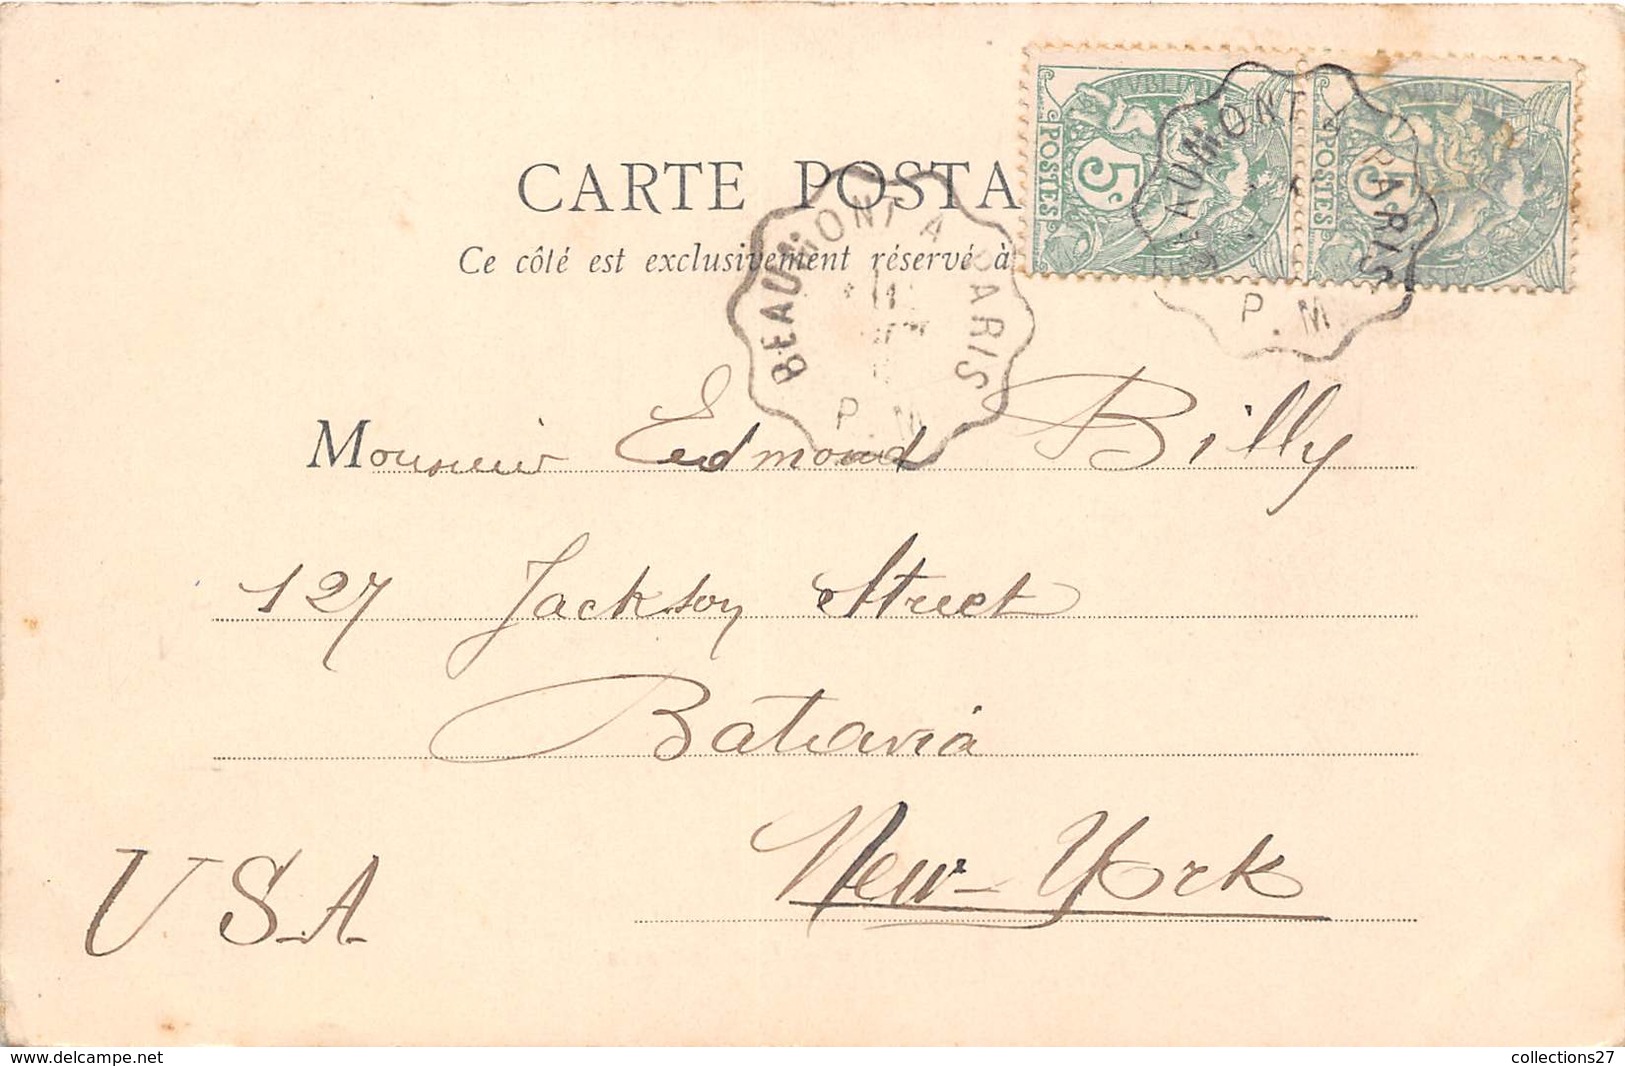 CARTE POSTA
Ce côté est exclusivement réservé à
RÉPUBLIQUE
POSTES
5c
POSTES
5c
BEAUMONT A PARIS
P.M
BEAUMONT A PARIS
P.M
Monsieur Edmond Billy
127 Jackson Street
Batavia
New-York
USA
www.delcampe.net
collections27